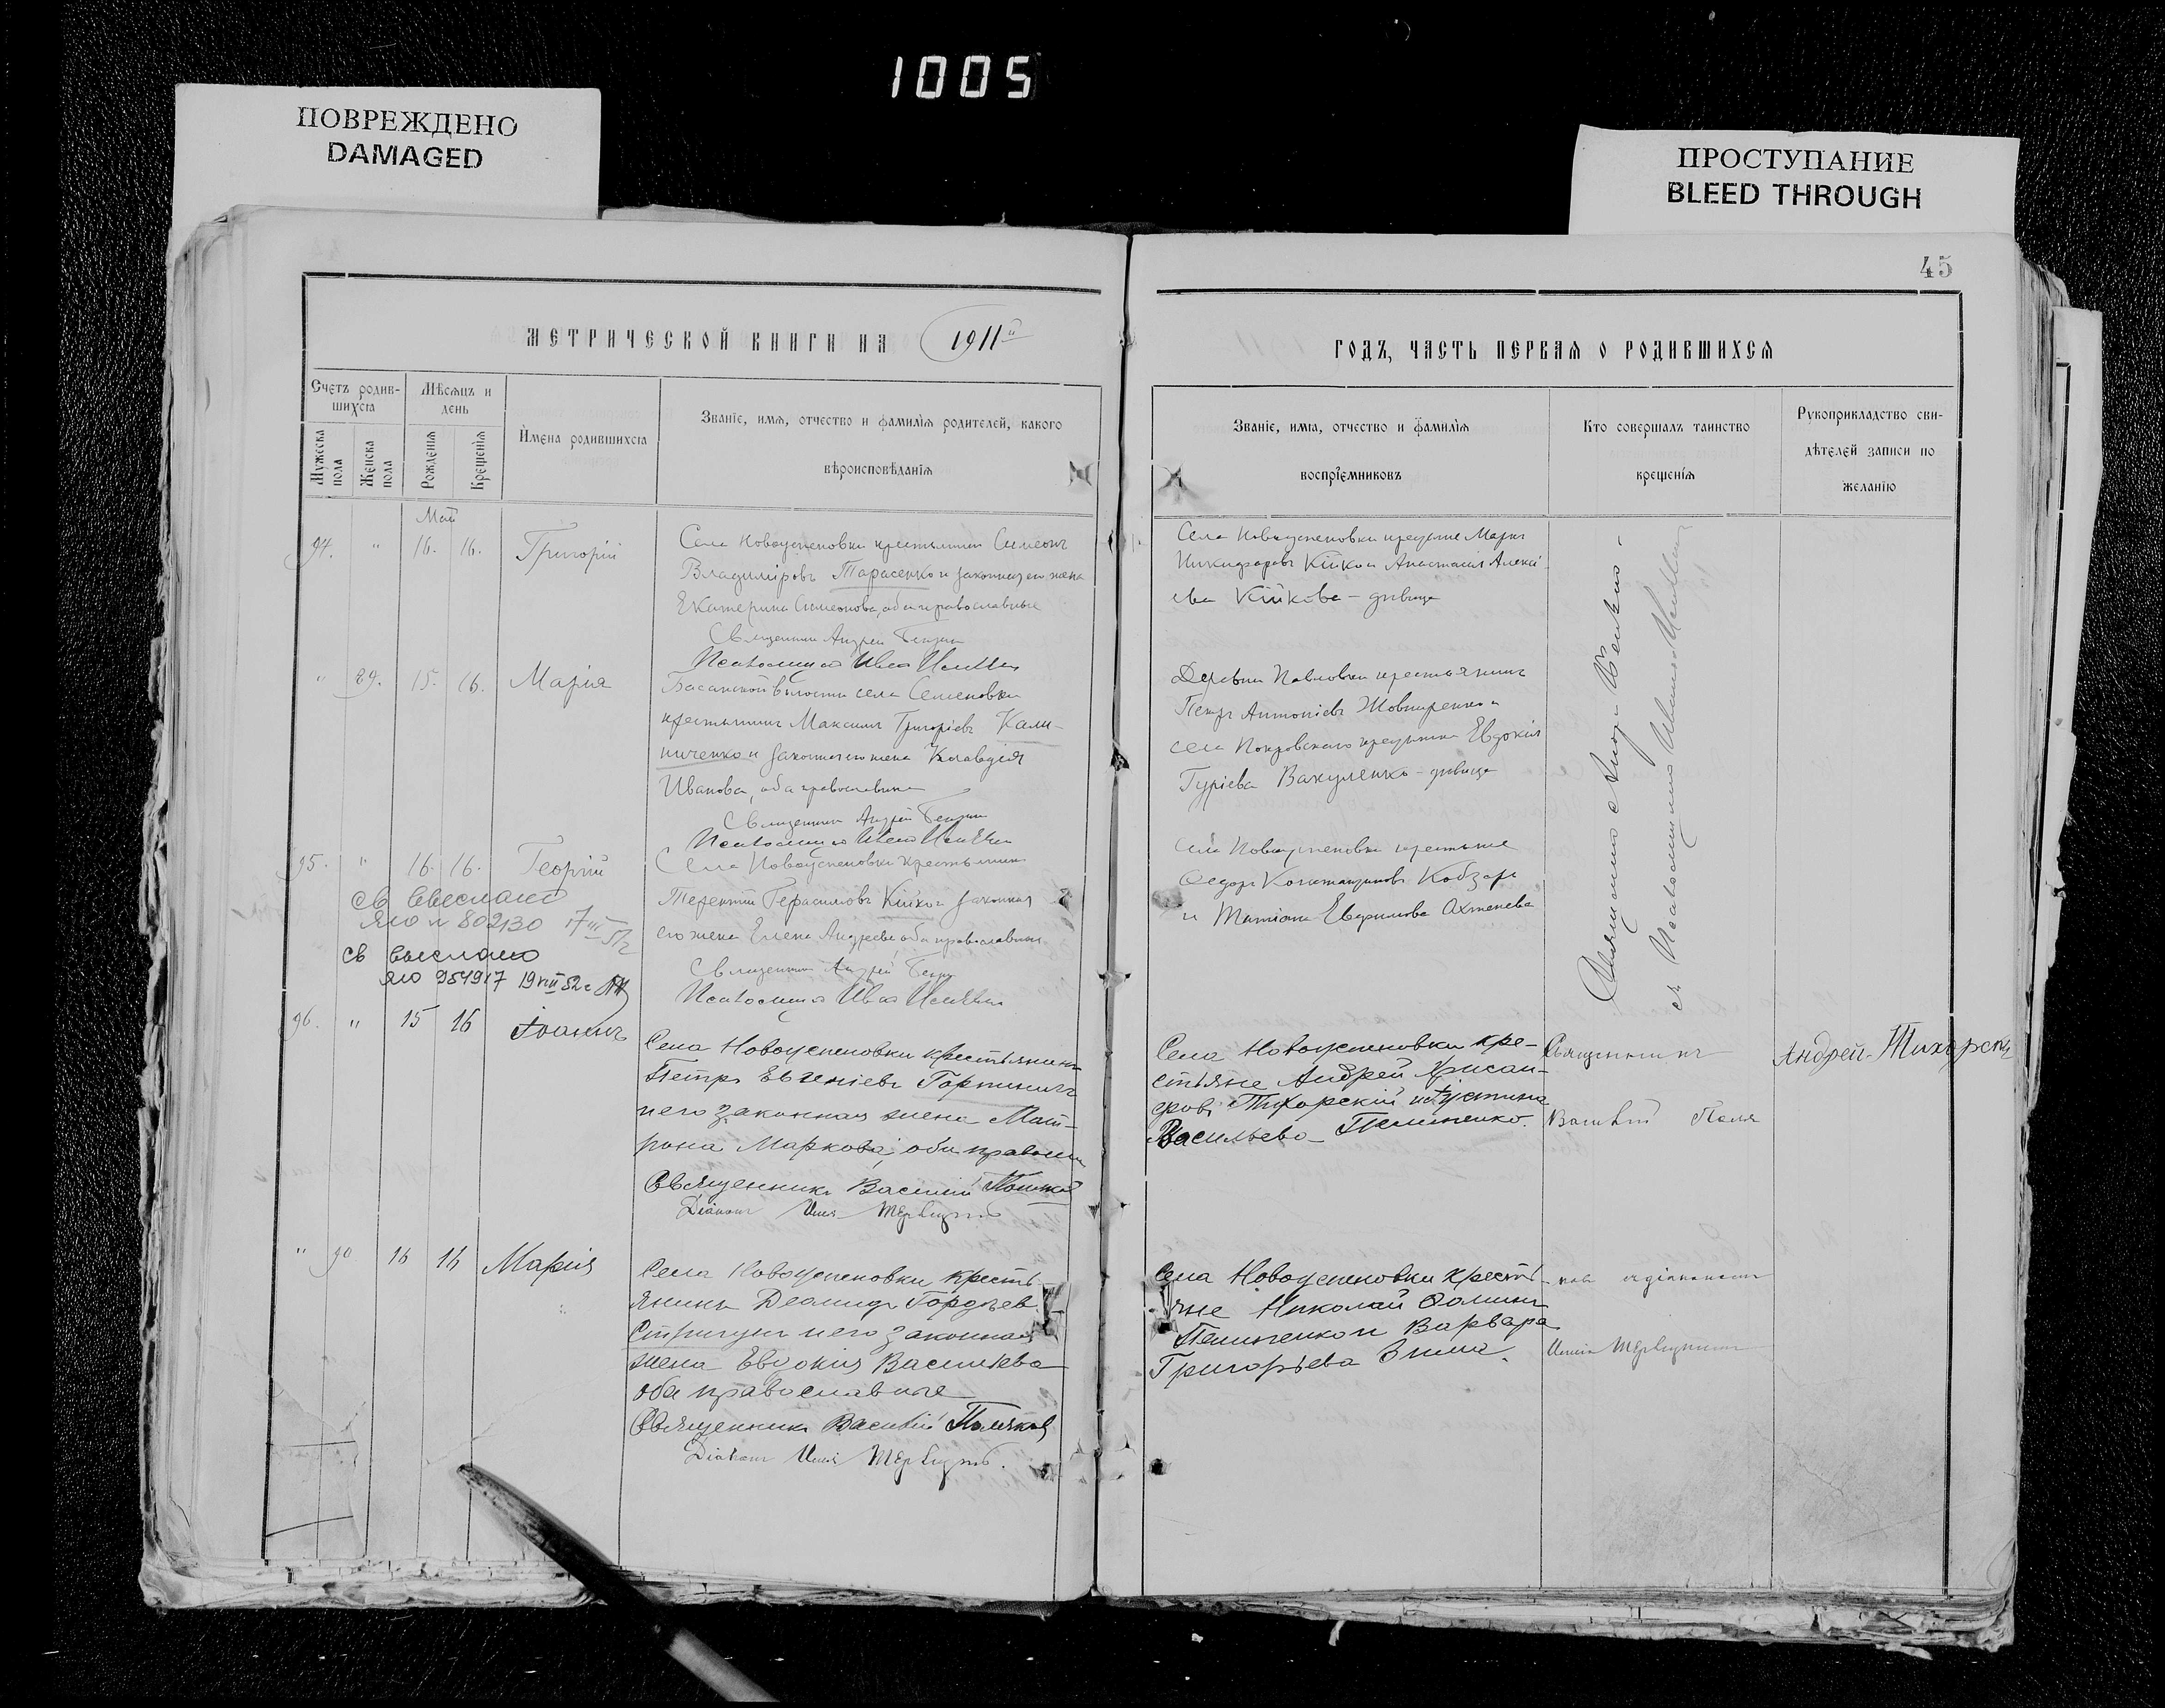 1005
ПОВРЕЖДЕНО
DAMAGED
ПРОСТУПАНИЕ
BLEED THROUGH
45
МЕТРИЧЕСКОЙ КНИГИ НА 1911й
ГОДЪ, ЧАСТЬ ПЕРВАЯ О РОДИВШИХСЯ
Счетъ родив-
шихся
Мужеска пола
Женска пола
Мѣсяцъ и
день
Рожденія
Крещенія
Имена родившихся
Званіе, имя, отчество и фамилія родителей, какого
вѣроисповѣданія
Званіе, имя, отчество и фамилія
воспріемниковъ
Кто совершалъ таинство
крещенія
Рукоприкладство сви-
дѣтелей записи по
желанію
Май
94. " 16. 16. Григорій
Села Новоуспеновки крестьянинъ Симеонъ
Владиміровъ Тарасенко и законная его жена
Екатерина Симеонова, оба православные
Священник Андрей
Псаломщик Иван
Села Новоуспеновки крестьяне Маркъ
Никифоровъ Кійко и Анастасія Алексі
ева Кійкова - дѣвица
" 89. 15. 16. Марія
Басанской волости села Семеновки
крестьянинъ Максимъ Григоріевъ Кали-
ниченко и законная его жена Клавдія
Иванова, оба православные
Священник Андрей
Псаломщик Иван
Деревни Павловки крестьянинъ
Петръ Антоніевъ Жовниренко и
села Покровскаго крестьянка Евдокія
Гуріева Вакуленко - дѣвица
95. " 16. 16. Георгій
Села Новоуспеновки крестьянинъ
Терентій Герасимовъ Кійко и законная
его жена Елена Андреева оба православные
Священник Андрей
Псаломщик Иван
Села Новоуспеновки крестьяне
Ѳедоръ Константиновъ Кобзарь
и Татіана Евфимова Ахтенева
св выслано
ЯЮ № 802130 17
св выслано
ЯЮ 954917 19 VIII 52 г
96. " 15 16 Іоаннъ
Села Новоуспеновки крестьянинъ
Петръ Евгеніевъ
и его законная жена Мат-
рона Маркова, оба правосл
Священникъ Василій
Діаконъ Илія
Села Новоуспеновки кре-
стьяне Андрей Хрисан-
фовъ Тихорскій и Іустина
Васильева Пелипенко.
Священникъ
Василій Поля
Андрей Тихорски
" 90 16 16 Марія
Села Новоуспеновки кресть-
янинъ Діомидъ Гордѣев
и его законная
жена Евдокія Васильева
оба православные
Священникъ Василій Поляков
Діаконъ Илія
Села Новоуспеновки кресть-
яне Николай Ѳоминъ
Пелипенко и Варвара
Григорьева
ковъ съ діакономъ
Иліею
Священникъ Андр.
съ Псаломщикомъ Иваномъ